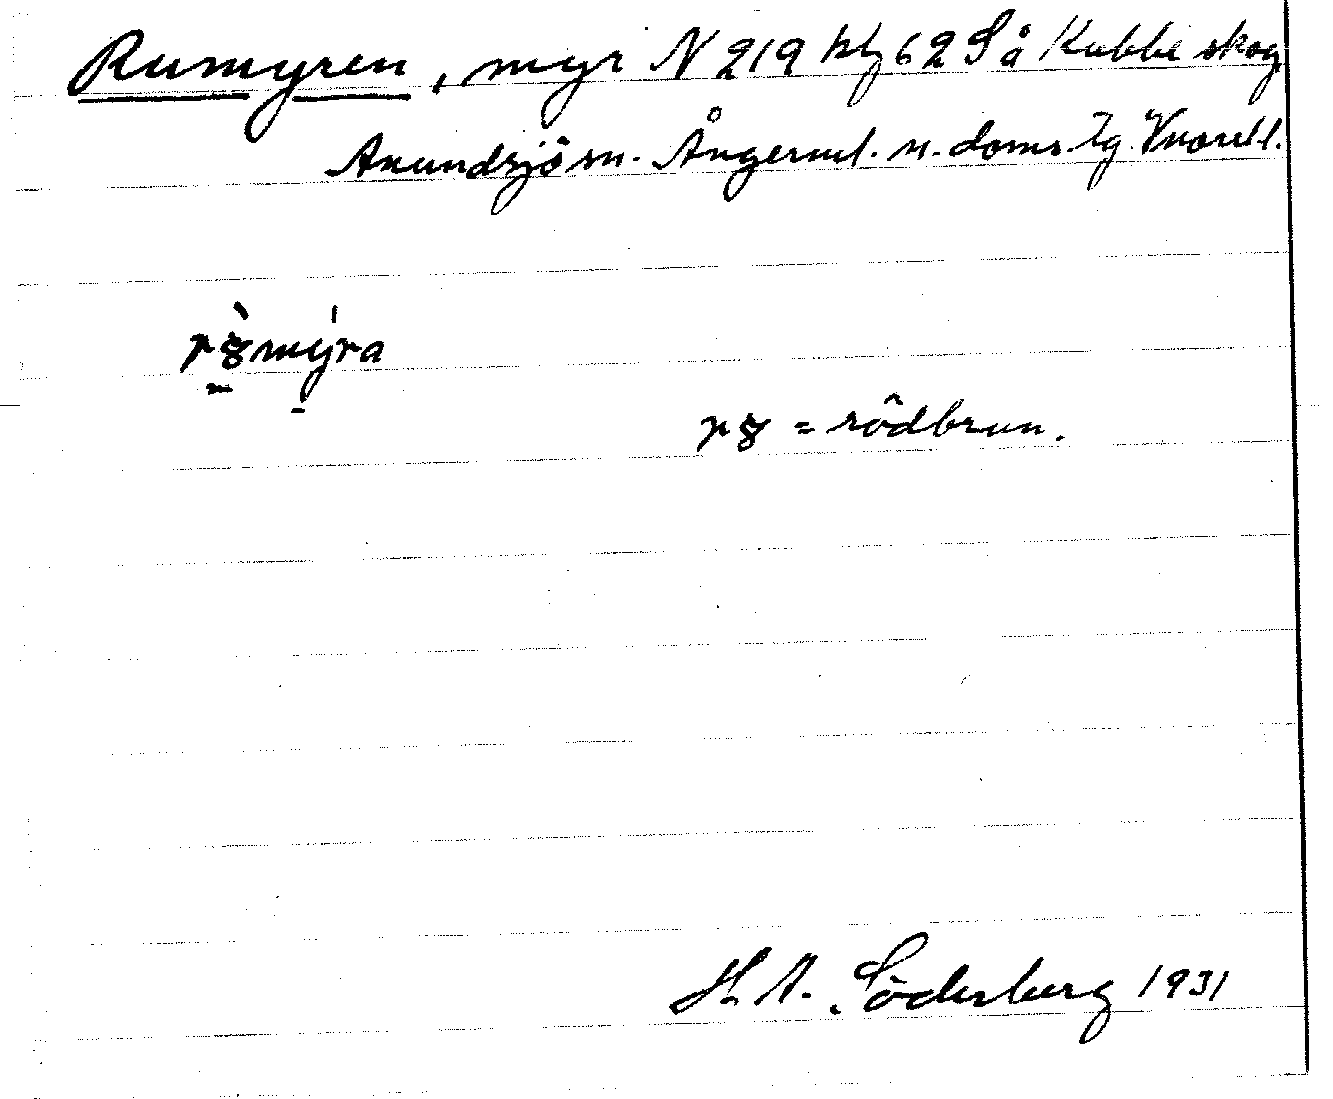 Rumyren, myr N 219 hbl 62 S å Kubbe skog
Anundsjö sn. Ångerml. n. doms. Tg. Vnorrl.
rȣ̀mýra
rȣ = rödbrun.
H. A. Söderberg 1931